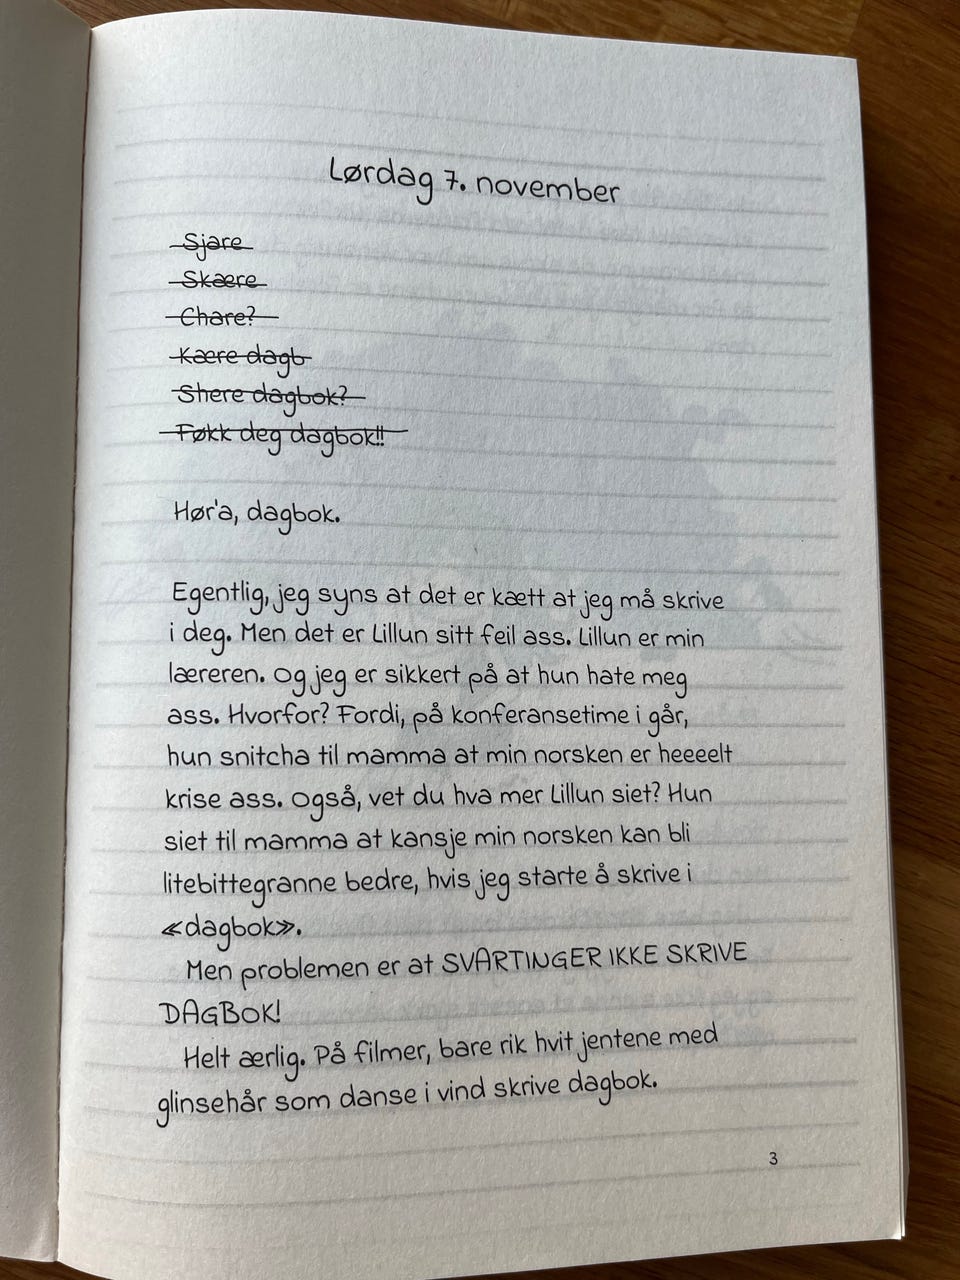 Lørdag 7. november
Sjare
Skære
Chare?
Kære dagb
Shere dagbok?
Føkk deg dagbok!!
Hør'a, dagbok.
Egentlig, jeg syns at det er kætt at jeg må skrive
i deg. Men det er Lillun sitt feil ass. Lillun er min
læreren. Og jeg er sikkert på at hun hate meg
ass. Hvorfor? Fordi, på konferansetime i går,
hun snitcha til mamma at min norsken er heeeelt
krise ass. Også, vet du hva mer Lillun siet? Hun
siet til mamma at kansje min norsken kan bli
litebittegranne bedre, hvis jeg starte å skrive i
«dagbok».
Men problemen er at SVARTINGER IKKE SKRIVE
DAGBOK!
Helt ærlig. På filmer, bare rik hvit jentene med
glinsehår som danse i vind skrive dagbok.
3